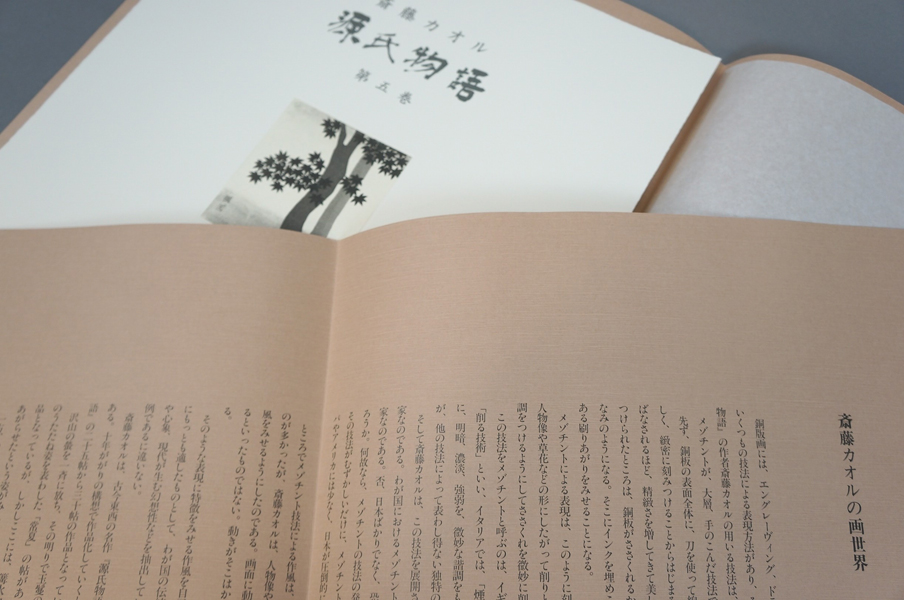 斎藤カオル
源氏物語
第五巻
斎藤カオルの画世界
銅版画には、エングレーヴィング、ド
いくつもの技法による表現方法があり、
物語』の作者斎藤カオルの用いる技法は、
メゾチントが、大層、手のこんだ技法で
先ず、銅板の表面全体に、刀を使って
しく、緻密に刻みつけることからはじま
ばなされるほど、精緻さを増してきて美
つけられたところは、銅板がささくれる
なみのようになる。そこにインクを埋め
ある刷りあがりをみせることになる。
メゾチントによる表現は、このように刻
人物像や草花などの形にしたがって削り
調をつけるようにしてささくれを微妙に削
この技法をメゾチントと呼ぶのは、イギ
「削る技術」といい、イタリアでは、「煙
に、明暗、濃淡、強弱を、微妙な諧調をも
が、他の技法によって表わし得ない独特の
そして斎藤カオルは、この技法を展開さ
家なのである。わが国におけるメゾチント
家なのである。否、日本ばかりでなく、
ろうか。何故なら、メゾチントの技法の発
その技法がむずかしいだけに、メゾチント
パやアメリカには少なく、日本が圧倒的
ところでメゾチント技法による作風は、
のが多かったが、斎藤カオルは、人物像や
風をみせるようにしたのである。画面に動
るといったものではない。動きがそこはか
る。
そのような表現に特徴をみせる作風を自
にもっとも適したものとして、わが国の伝
や心象、現代が生む幻想性などを描出して
例であるに違いない。
斎藤カオルは、古今東西の名作『源氏物
ある。十年がかりの構想で作品化していく
語』の二十五帖から三十帖の作品となって
沢山の螢を一斉に放ち、その明りで玉鬘
のうたたね姿を表わした「常夏」の帖があ
品となっているが、しかしここには、